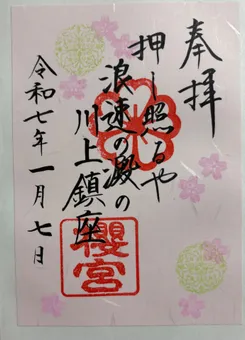 奉拝
押し照るや
浪速の澱の
川上鎮座
櫻宮
令和七年一月七日